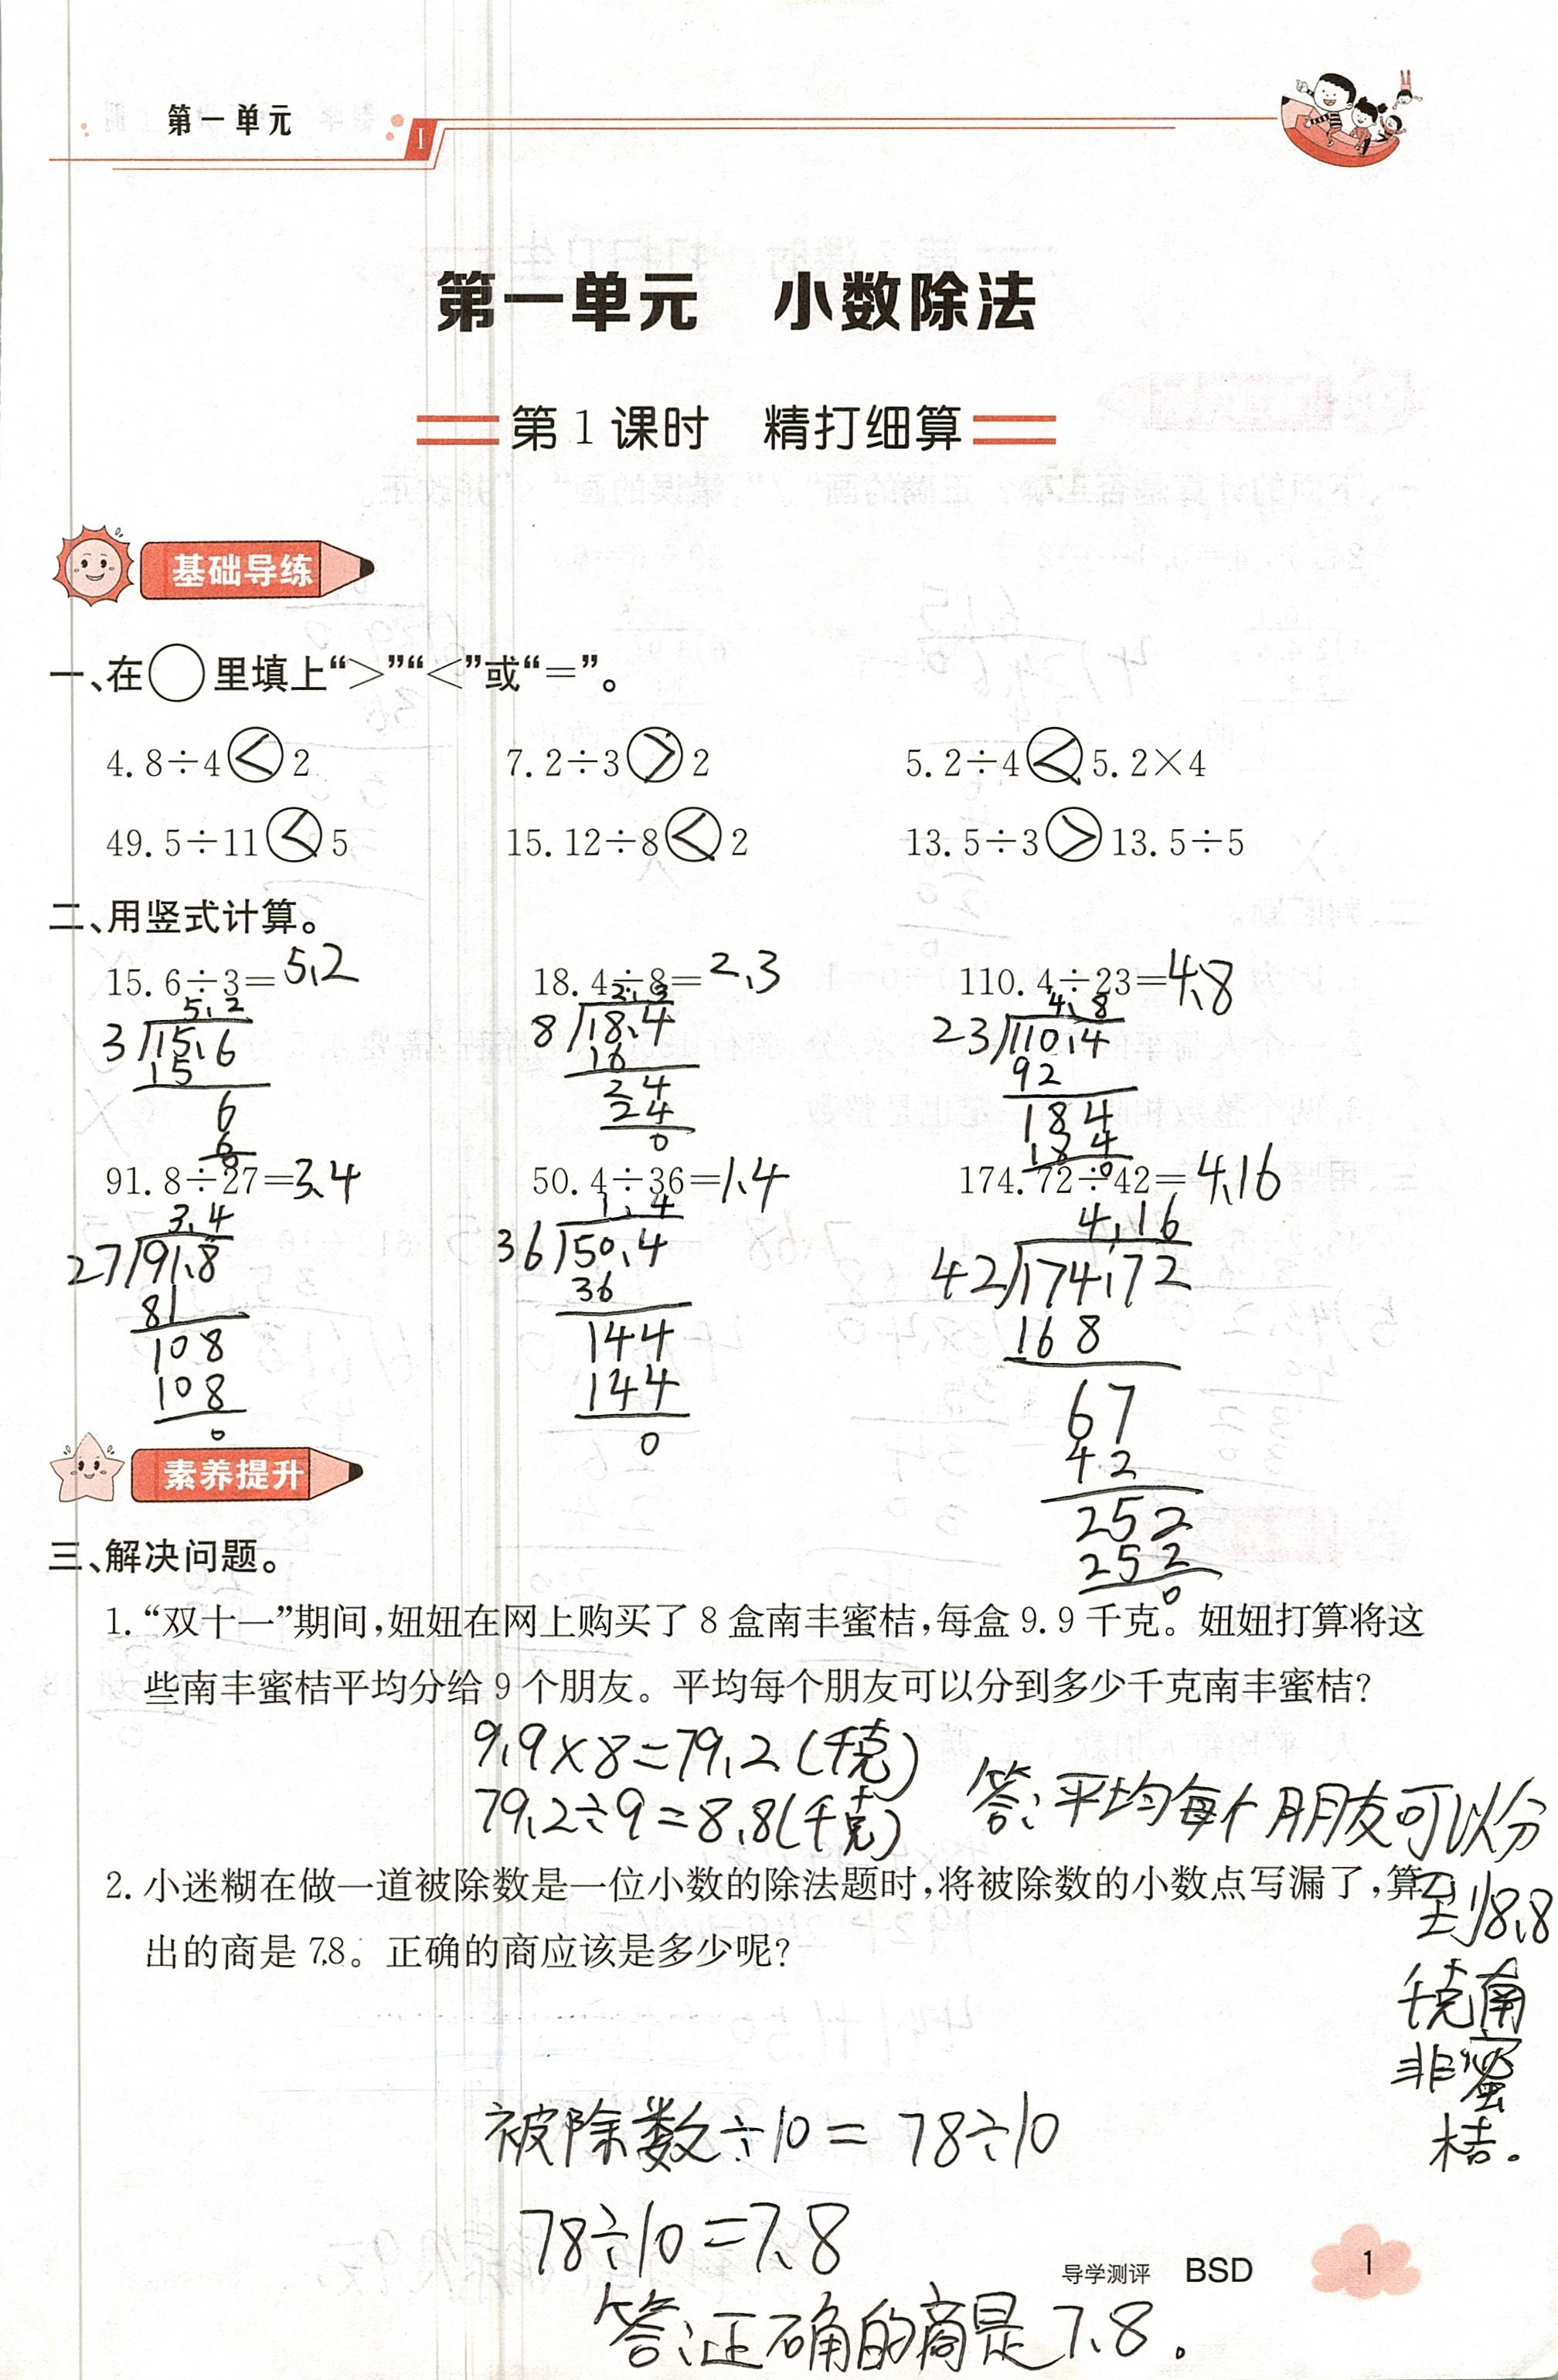 第一单元
I
第一单元 小数除法
第1课时 精打细算
基础导练
一、在○里填上“>”“<”或“=”。
4.8÷4<2 7.2÷3>2 5.2÷4<5.2×4
49.5÷11<5 15.12÷8<2 13.5÷3>13.5÷5
二、用竖式计算。
15.6÷3=5.2 18.4÷8=2.3 110.4÷23=4.8
5.2 2.3 4.8
3 15.6 8 18.4 23 110.4
15 16 92
6 24 184
6 24 184
0 0
91.8÷27=3.4 50.4÷36=1.4 174.72÷42=4.16
3.4 1.4 4.16
27 91.8 36 50.4 42 174.72
81 36 168
108 144 67
108 144 42
0 0 252
252
0
素养提升
三、解决问题。
1.“双十一”期间,妞妞在网上购买了8盒南丰蜜桔,每盒9.9千克。妞妞打算将这
些南丰蜜桔平均分给9个朋友。平均每个朋友可以分到多少千克南丰蜜桔?
9.9×8=79.2(千克)
79.2÷9=8.8(千克)
答:平均每个朋友可以分
到8.8
千克南
蜜
桔。
2.小迷糊在做一道被除数是一位小数的除法题时,将被除数的小数点写漏了,算
出的商是78。正确的商应该是多少呢?
被除数÷10=78÷10
78÷10=7.8
答:正确的商是7.8。
导学测评 BSD 1